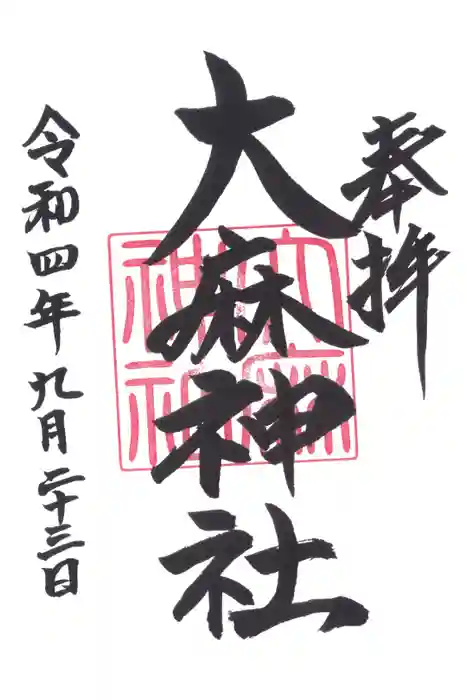 奉拝
大麻神社
大麻
神社
令和四年九月二十三日